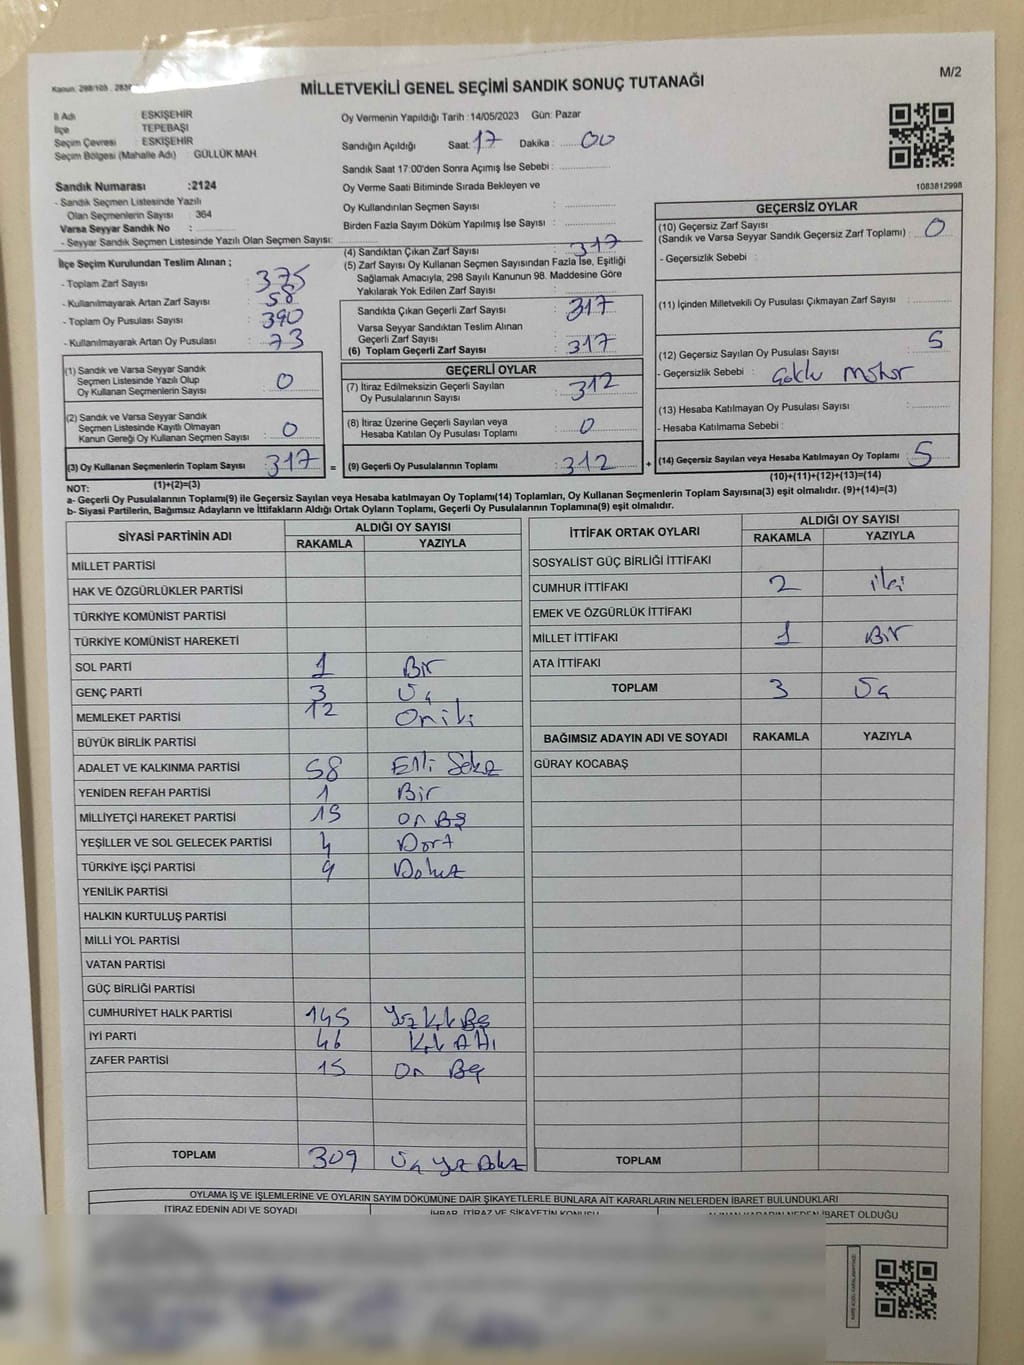 Kanun: 298/105
MİLLETVEKİLİ GENEL SEÇİMİ SANDIK SONUÇ TUTANAĞI
M/2
İl Adı ESKİŞEHİR
İlçe TEPEBAŞI
Seçim Çevresi : ESKİŞEHİR
Seçim Bölgesi (Mahalle Adı) GÜLLÜK MAH
Sandık Numarası :2124
- Sandık Seçmen Listesinde Yazılı
Olan Seçmenlerin Sayısı : 364
Varsa Seyyar Sandık No :
- Seyyar Sandık Seçmen Listesinde Yazılı Olan Seçmen Sayısı:
Oy Vermenin Yapıldığı Tarih :14/05/2023 Gün: Pazar
Sandığın Açıldığı Saat: 17 Dakika : 00
Sandık Saat 17:00'den Sonra Açımış İse Sebebi :
Oy Verme Saati Bitiminde Sırada Bekleyen ve
Oy Kullandırılan Seçmen Sayısı :
Birden Fazla Sayım Döküm Yapılmış İse Sayısı :
1083812998
İlçe Seçim Kurulundan Teslim Alınan ;
- Toplam Zarf Sayısı : 375
- Kullanılmayarak Artan Zarf Sayısı : 58
- Toplam Oy Pusulası Sayısı : 390
- Kullanılmayarak Artan Oy Pusulası : 73
(1) Sandık ve Varsa Seyyar Sandık
Seçmen Listesinde Yazılı Olup
Oy Kullanan Seçmenlerin Sayısı : 0
(2) Sandık ve Varsa Seyyar Sandık
Seçmen Listesinde Kayıtlı Olmayan
Kanun Gereği Oy Kullanan Seçmen Sayısı : 0
(3) Oy Kullanan Seçmenlerin Toplam Sayısı : 317 =
(1)+(2)=(3)
(4) Sandıktan Çıkan Zarf Sayısı : 317
(5) Zarf Sayısı Oy Kullanan Seçmen Sayısından Fazla İse, Eşitliği
Sağlamak Amacıyla, 298 Sayılı Kanunun 98. Maddesine Göre
Yakılarak Yok Edilen Zarf Sayısı :
Sandıkta Çıkan Geçerli Zarf Sayısı : 317
Varsa Seyyar Sandıktan Teslim Alınan
Geçerli Zarf Sayısı :
(6) Toplam Geçerli Zarf Sayısı : 317
GEÇERLİ OYLAR
(7) İtiraz Edilmeksizin Geçerli Sayılan
Oy Pusulalarının Sayısı : 312
(8) İtiraz Üzerine Geçerli Sayılan veya
Hesaba Katılan Oy Pusulası Toplamı : 0
(9) Geçerli Oy Pusulalarının Toplamı : 312 +
GEÇERSİZ OYLAR
(10) Geçersiz Zarf Sayısı
(Sandık ve Varsa Seyyar Sandık Geçersiz Zarf Toplamı) : 0
- Geçersizlik Sebebi :
(11) İçinden Milletvekili Oy Pusulası Çıkmayan Zarf Sayısı :
(12) Geçersiz Sayılan Oy Pusulası Sayısı : 5
- Geçersizlik Sebebi : Çoklu Mühür
(13) Hesaba Katılmayan Oy Pusulası Sayısı :
- Hesaba Katılmama Sebebi :
(14) Geçersiz Sayılan veya Hesaba Katılmayan Oy Toplamı : 5
(10)+(11)+(12)+(13)=(14)
NOT:
a- Geçerli Oy Pusulalarının Toplamı(9) ile Geçersiz Sayılan veya Hesaba katılmayan Oy Toplamı(14) Toplamları, Oy Kullanan Seçmenlerin Toplam Sayısına(3) eşit olmalıdır. (9)+(14)=(3)
b- Siyasi Partilerin, Bağımsız Adayların ve İttifakların Aldığı Ortak Oyların Toplamı, Geçerli Oy Pusulalarının Toplamına(9) eşit olmalıdır.
SİYASİ PARTİNİN ADI ALDIĞI OY SAYISI
RAKAMLA YAZIYLA
MİLLET PARTİSİ
HAK VE ÖZGÜRLÜKLER PARTİSİ
TÜRKİYE KOMÜNİST PARTİSİ
TÜRKİYE KOMÜNİST HAREKETİ
SOL PARTİ 1 Bir
GENÇ PARTİ 3 Üç
MEMLEKET PARTİSİ 12 Oniki
BÜYÜK BİRLİK PARTİSİ
ADALET VE KALKINMA PARTİSİ 58 Elli Sekiz
YENİDEN REFAH PARTİSİ 1 Bir
MİLLİYETÇİ HAREKET PARTİSİ 15 On Beş
YEŞİLLER VE SOL GELECEK PARTİSİ 4 Dört
TÜRKİYE İŞÇİ PARTİSİ 9 Dokuz
YENİLİK PARTİSİ
HALKIN KURTULUŞ PARTİSİ
MİLLİ YOL PARTİSİ
VATAN PARTİSİ
GÜÇ BİRLİĞİ PARTİSİ
CUMHURİYET HALK PARTİSİ 145 Yüz Kırk Beş
İYİ PARTİ 46 Kırk Altı
ZAFER PARTİSİ 15 On Beş
TOPLAM 309 Üç Yüz Dokuz
İTTİFAK ORTAK OYLARI ALDIĞI OY SAYISI
RAKAMLA YAZIYLA
SOSYALİST GÜÇ BİRLİĞİ İTTİFAKI
CUMHUR İTTİFAKI 2 iki
EMEK VE ÖZGÜRLÜK İTTİFAKI
MİLLET İTTİFAKI 1 Bir
ATA İTTİFAKI
TOPLAM 3 Üç
BAĞIMSIZ ADAYIN ADI VE SOYADI RAKAMLA YAZIYLA
GÜRAY KOCABAŞ
TOPLAM
OYLAMA İŞ VE İŞLEMLERİNE VE OYLARIN SAYIM DÖKÜMÜNE DAİR ŞİKAYETLERLE BUNLARA AİT KARARLARIN NELERDEN İBARET BULUNDUKLARI
İTİRAZ EDENİN ADI VE SOYADI
İHBAR, İTİRAZ VE ŞİKAYETİN KONUSU
ALINAN KARARIN NEDEN İBARET OLDUĞU